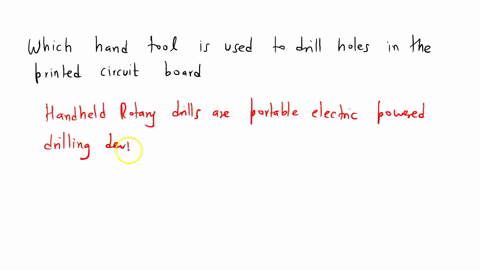 Which hand tool is used to drill holes in the
printed circuit board
Handheld Rotary drills are portable electric powered
drilling dev